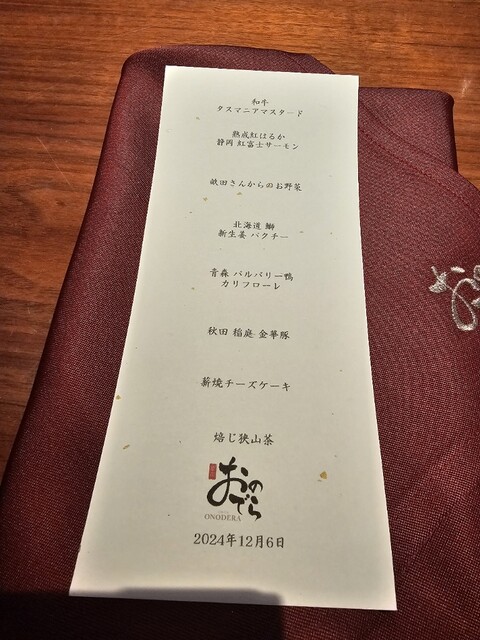 和牛
タスマニアマスタード
熟成紅はるか
静岡 紅富士サーモン
畝田さんからのお野菜
北海道 鰤
新生姜 パクチー
青森 バルバリー鴨
カリフローレ
秋田 稲庭 金華豚
薪焼チーズケーキ
焙じ狭山茶
おのでら
ONODERA
2024年12月6日